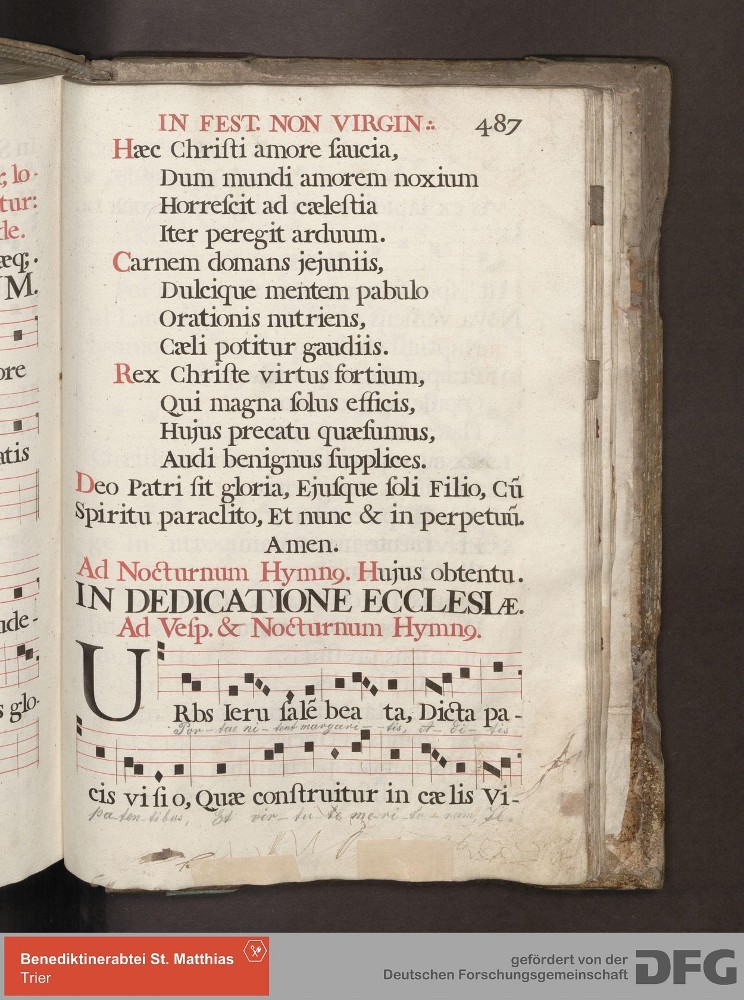 r; lo-
tur:
de.
æq;.
UM.
ore
atis
ide-
s glo-
IN FEST. NON VIRGIN. 487
Hæc Chriſti amore ſaucia,
Dum mundi amorem noxium
Horreſcit ad cæleſtia
Iter peregit arduum.
Carnem domans jejuniis,
Dulcique mentem pabulo
Orationis nutriens,
Cæli potitur gaudiis.
Rex Chriſte virtus fortium,
Qui magna ſolus efficis,
Hujus precatu quæſumus,
Audi benignus ſupplices.
Deo Patri ſit gloria, Ejuſque ſoli Filio, Cũ
Spiritu paraclito, Et nunc & in perpetuũ.
Amen.
Ad Nocturnum Hymnꝯ. Hujus obtentu.
IN DEDICATIONE ECCLESIÆ.
Ad Veſp. & Nocturnum Hymnꝯ.
URbs Ieru ſalẽ bea ta, Dicta pa-
Por-tae ni-tent margari--tis, A-di-tis
cis viſi o, Quæ conſtruitur in cæ lis Vi-
pa-ten-tibus, Et vir-tu-te me-ri-to-rum,
Benediktinerabtei St. Matthias
Trier
gefördert von der
Deutschen Forschungsgemeinschaft
DFG